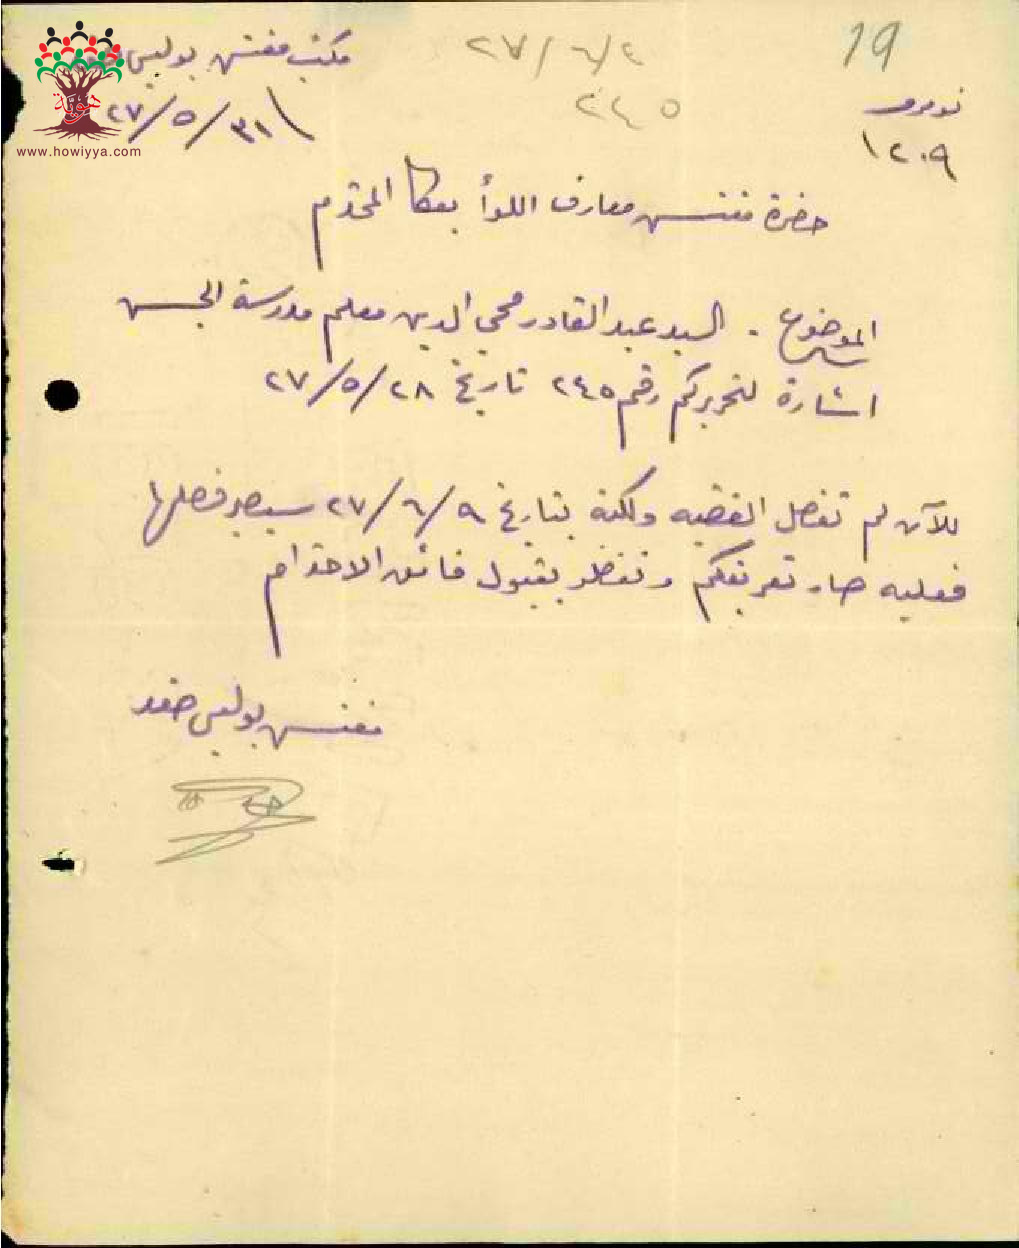 19
٢٧/٦/٢
مكتب مفتش بوليس صفد
هوية
نومرو
٢٤٥
٢٧/٥/٣١
١٢٠٩
www.howiyya.com
حضرة مفتش معارف اللوأ بعكا المحترم
الموضوع . السيد عبد القادر محي الدين معلم مدرسة الجش
اشارة لتحريركم رقم ٢٤٥ تاريخ ٢٧/٥/٢٨
للآن لم تفصل القضيه ولكنه بتاريخ ٢٧/٦/٩ سيصير فصلها
فعليه صار تعريفكم وتفضلو بقبول فائق الاحترام
مفتش بوليس صفد